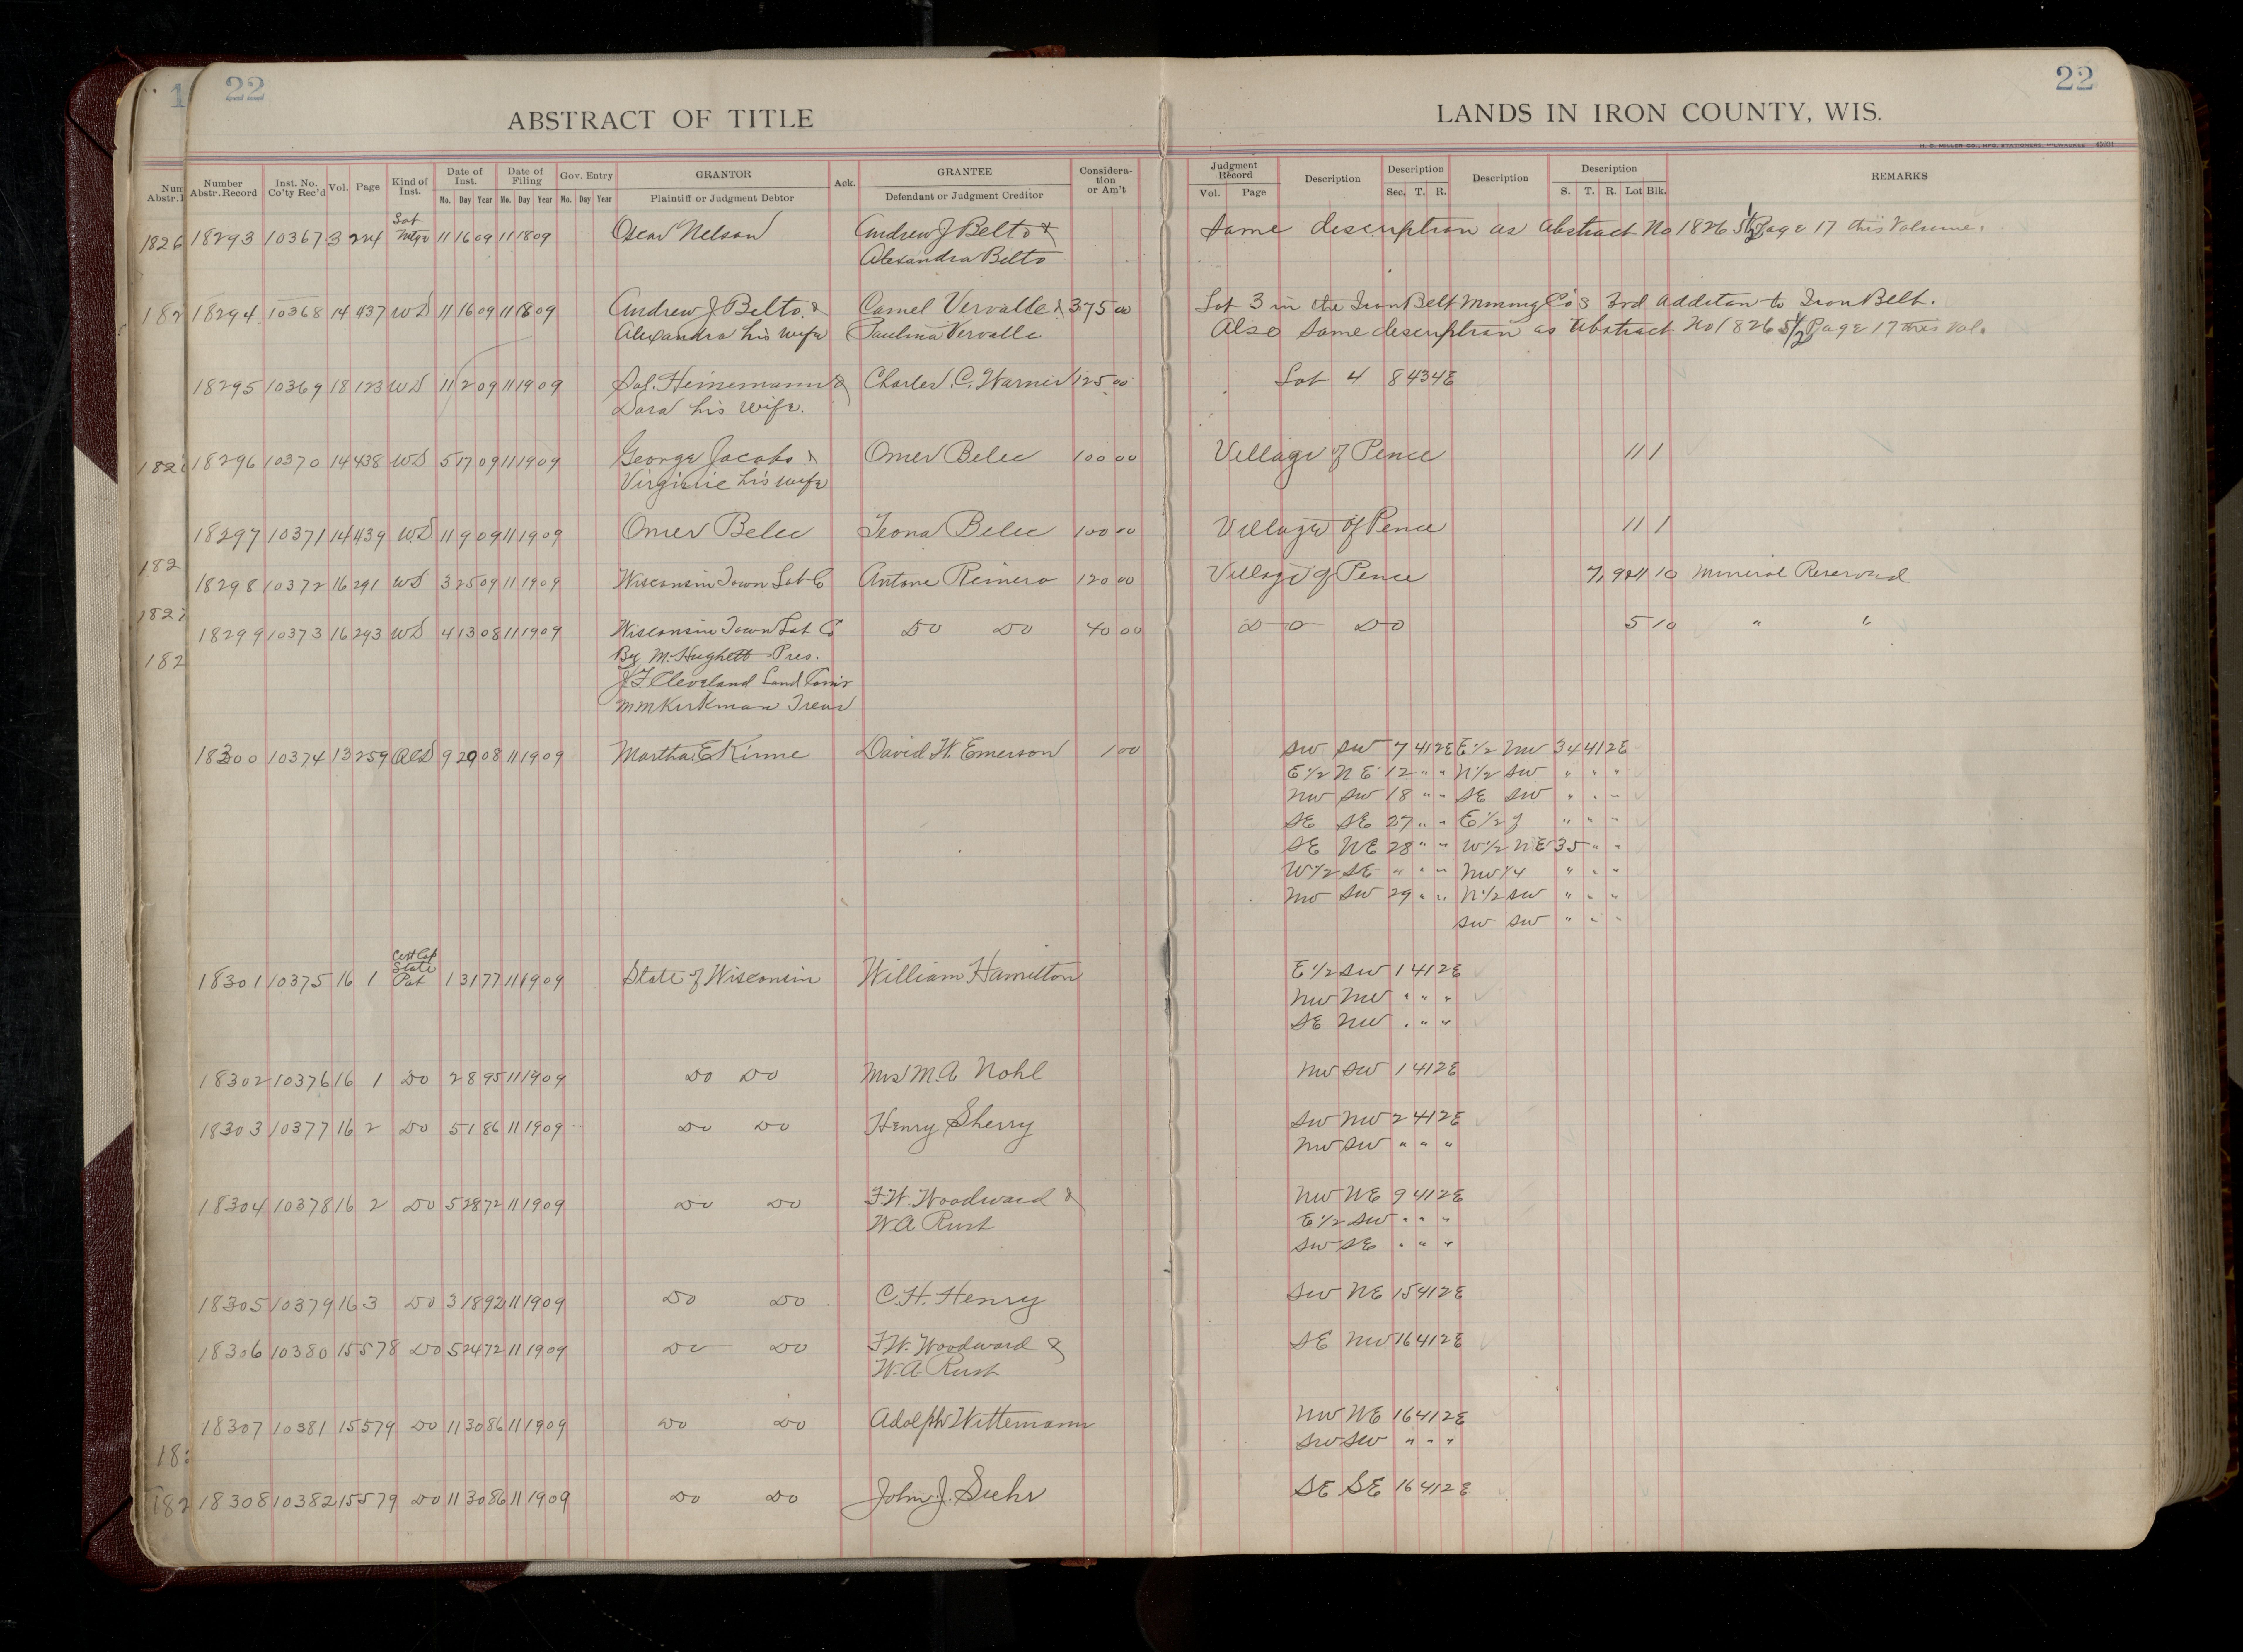 22
1
22
ABSTRACT OF TITLE
LANDS IN IRON COUNTY, WIS.
H. C. MILLER CO., MFG. STATIONERS, MILWAUKEE
Number Abstr. Record Inst. No. Co'ty Rec'd Vol. Page Kind of Inst. Date of Inst. Mo. Day Year Date of Filing Mo. Day Year Gov. Entry Mo. Day Year GRANTOR Plaintiff or Judgment Debtor Ack. GRANTEE Defendant or Judgment Creditor Considera-tion or Am't Judgment Record Vol. Page Description Description Sec. T. R. Description Description S. T. R. Lot Blk. REMARKS
Sat
18293 10367 3 224 Mtge 11 16 09 11 18 09 Oscar Nelson Andrew J Belto & Same description as Abstract No 18265½ Page 17 this Volume.
Alexandra Belto
18294 10368 14 437 WD 11 16 09 11 18 09 Andrew J Belto & Camel Vervalle & 375 00 Lot 3 in the Iron Belt Mining Co's 3rd Additon to Iron Belt.
Alexandra his wife Paulina Vervalle Also Same description as Abstract No 18265½ Page 17 this Vol.
18295 10369 18 123 WD 11 2 09 11 19 09 Sol. Heinemann & Charles C. Warner 125 00 Lot 4 8 43 4E
Dora his wife.
18296 10370 14 438 WD 5 17 09 11 19 09 George Jacobs & Omer Belec 100 00 Village of Pence 11 1
Virginie his wife
18297 10371 14 439 W.D 11 9 09 11 19 09 Omer Belec Leona Belec 100 00 Village of Pence 11 1
18298 10372 16 291 WD 3 25 09 11 19 09 Wisconsin Town Lot Co Antone Reinero 120 00 Village of Pence 10 Mineral Reserved
18299 10373 16 293 WD 4 13 08 11 19 09 Wisconsin Town Lot Co Do Do 40 00 Do Do 5 10 " "
By M. Hughett Pres.
J. F. Cleveland Land Com'r
M M Kirkman Treas
18300 10374 13 259 QCD 9 29 08 11 19 09 Martha E Kinne David W. Emerson 1 00 SW SW 7 41 2E E½ NW 34 41 2E
E½ NE 12 " " N½ SW " " "
NW SW 18 " " SE SW " " "
SE SE 27 " " E½ " " "
SE NE 28 " " W½ NE 35 " "
W½ SE " " " NW¼ " " "
NW SW 29 " " N½ SW " " "
SW SW " " "
State
18301 10375 16 1 Pat 1 31 77 11 19 09 State of Wisconsin William Hamilton E½ SW 1 41 2E
NW NW " " "
SE NW " " "
18302 10376 16 1 Do 2 8 95 11 19 09 Do Do Mrs M.A Nohl NW SW 1 41 2E
18303 10377 16 2 Do 5 1 86 11 19 09 Do Do Henry Sherry SW NW 2 41 2E
NW SW " " "
18304 10378 16 2 Do 5 28 72 11 19 09 Do Do F.W. Woodward & NW NE 9 41 2E
W A Rust E½ SW " " "
SW SE " " "
18305 10379 16 3 Do 3 18 92 11 19 09 Do Do C. H. Henry SW NE 15 41 2E
18306 10380 15 578 Do 5 24 72 11 19 09 Do Do F.W. Woodward & SE NW 16 41 2E
W.A. Rust
18307 10381 15 579 Do 11 30 86 11 19 09 Do Do Adolph Wittemann NW NE 16 41 2E
SW SW " " "
18308 10382 15 579 Do 11 30 86 11 19 09 Do Do John J. Suehr SE SE 16 41 2E